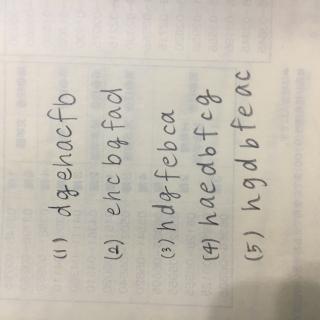 (1) dgehacfb
(2) ehcbgfad
(3) hdgfebca
(4) haedbfcg
(5) hgdbfeac